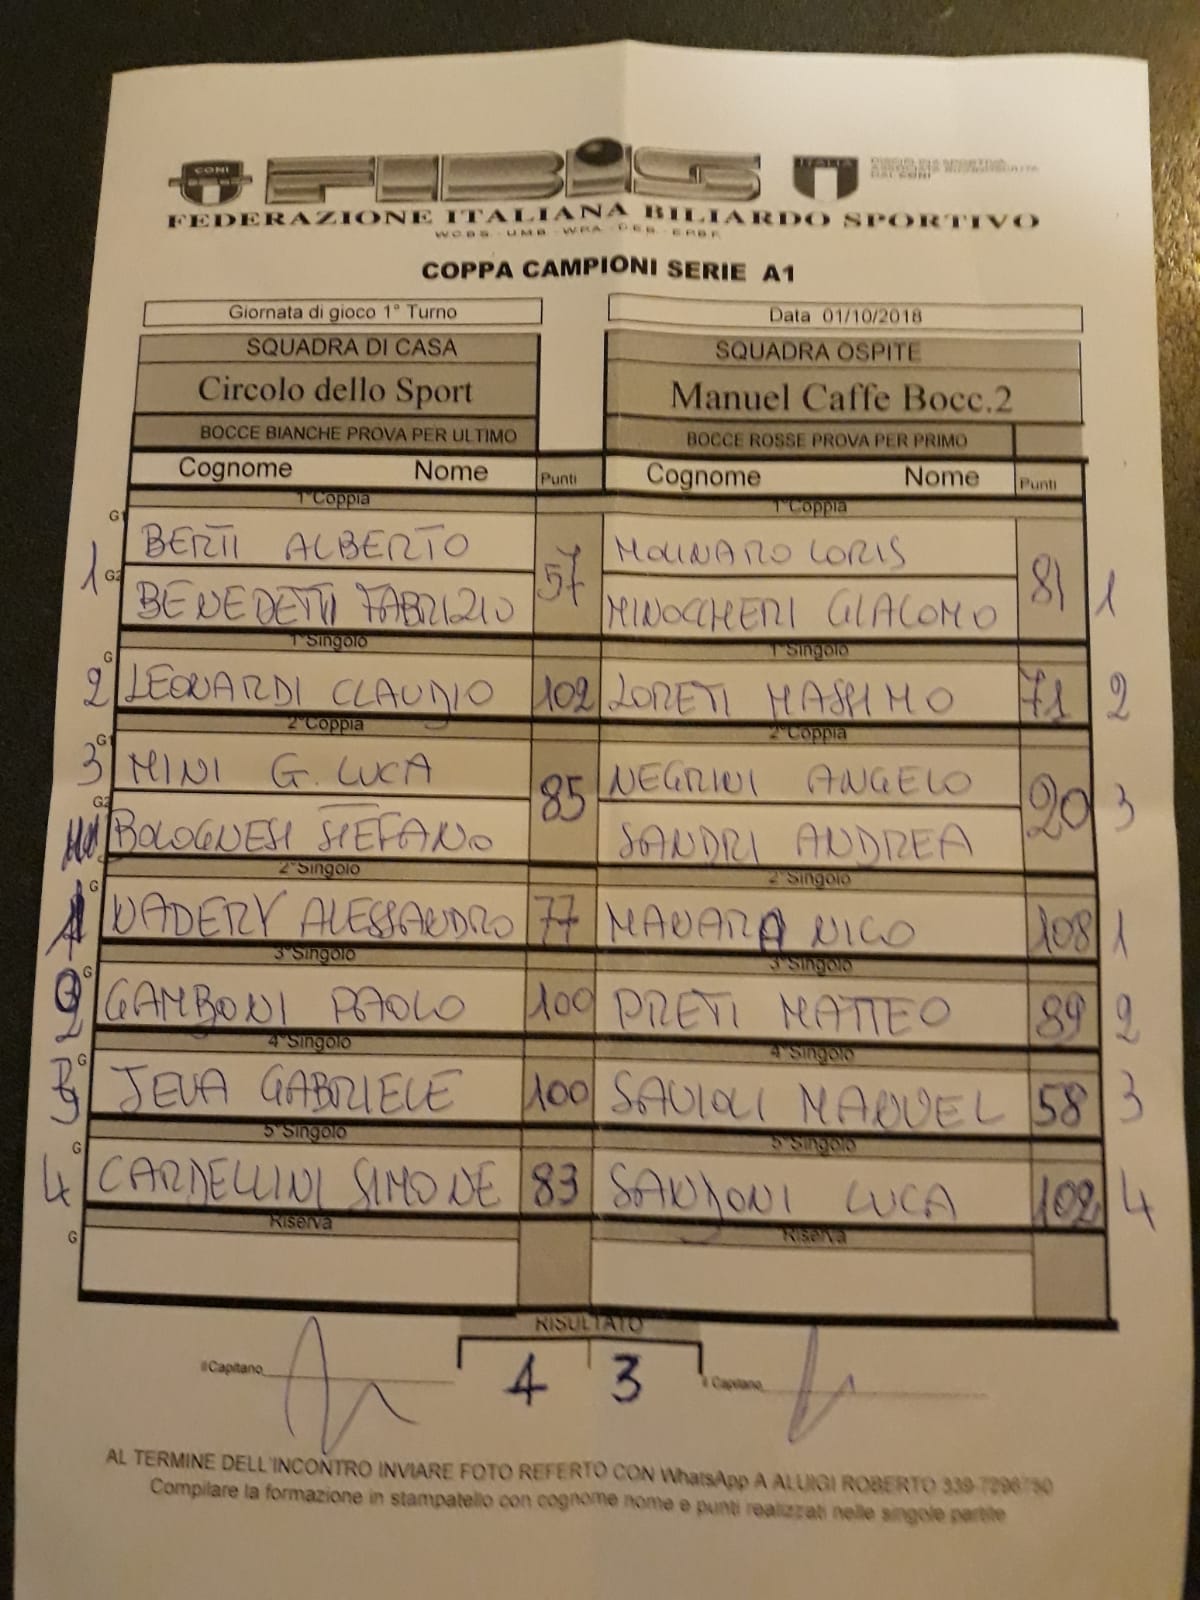 CONI FIBiS ITALIA
FEDERAZIONE ITALIANA BILIARDO SPORTIVO
COPPA CAMPIONI SERIE A1
Giornata di gioco 1° Turno Data 01/10/2018
SQUADRA DI CASA SQUADRA OSPITE
Circolo dello Sport Manuel Caffe Bocc.2
BOCCE BIANCHE PROVA PER ULTIMO BOCCE ROSSE PROVA PER PRIMO
Cognome Nome Punti Cognome Nome Punti
1°Coppia 1°Coppia
G1 BERTI ALBERTO 57 MOLINARO LORIS 81
1 G2 BENEDETTI FABRIZIO MINOCCHERI GIACOMO 1
1°Singolo 1°Singolo
G 2 LEONARDI CLAUDIO 102 LORETI MASSIMO 71 2
2°Coppia 2°Coppia
G1 3 MINI G. LUCA 85 NEGRINI ANGELO 20 3
G2 BOLOGNESI STEFANO SANDRI ANDREA
2°Singolo 2°Singolo
G 1 NADERY ALESSANDRO 77 MANARA NICO 108 1
3°Singolo 3°Singolo
G 2 GAMBONI PAOLO 100 PRETI MATTEO 89 2
4°Singolo 4°Singolo
G 3 JEVA GABRIELE 100 SAVIOLI MANUEL 58 3
5°Singolo 5°Singolo
G 4 CARDELLINI SIMONE 83 SANZONI LUCA 102 4
Riserva Riserva
G
RISULTATO
il Capitano 4 3 il Capitano
AL TERMINE DELL'INCONTRO INVIARE FOTO REFERTO CON WhatsApp A ALUIGI ROBERTO 339-7296750
Compilare la formazione in stampatello con cognome nome e punti realizzati nelle singole partite